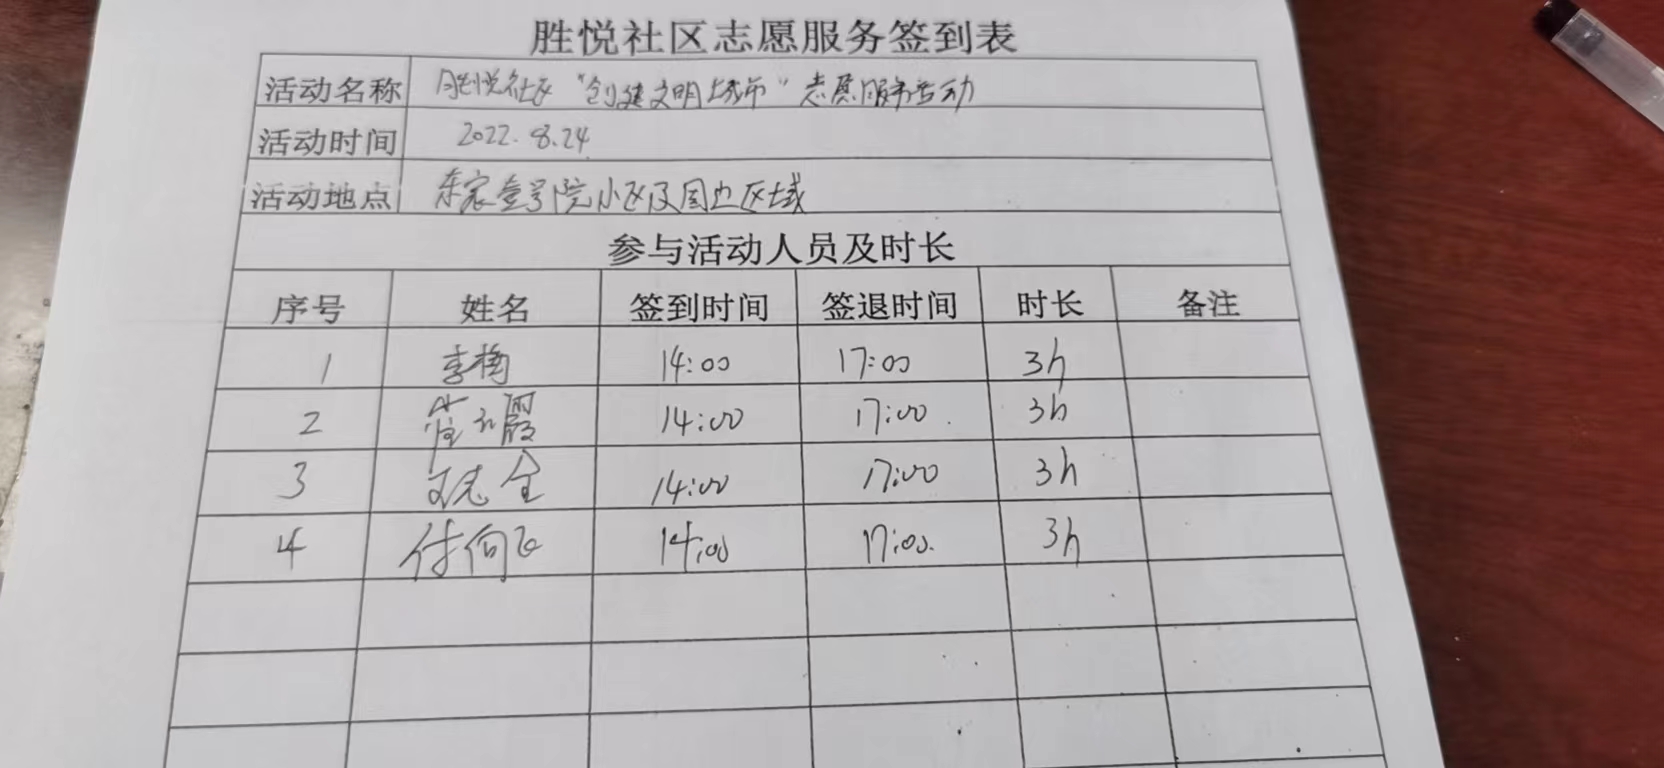 胜悦社区志愿服务签到表
活动名称 胜悦社区“创建文明城市”志愿服务活动
活动时间 2022.8.24
活动地点 东宸壹号院小区及周边区域
参与活动人员及时长
序号 姓名 签到时间 签退时间 时长 备注
1 李梅 14:00 17:00 3h
2 14:00 17:00 3h
3 14:00 17:00 3h
4 付向飞 14:00 17:00 3h